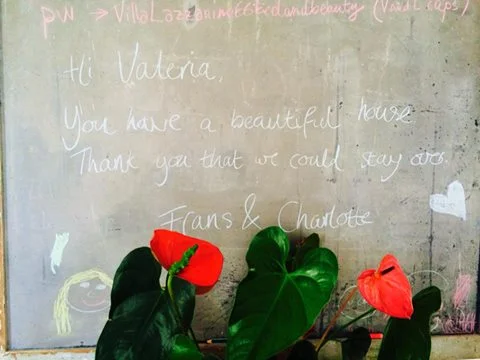 pw → VillaLazzarino66bedandbeauty (Vand L caps)
Hi Valeria,
You have a beautiful house
Thank you that we could stay over.
Frans & Charlotte